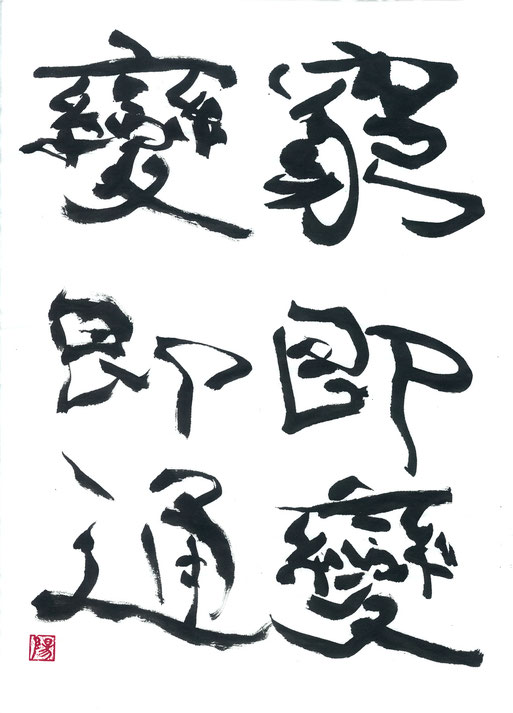 窮即變
變即通
陽